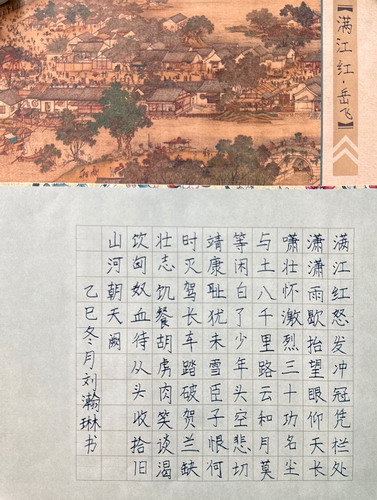 【满江红·岳飞】
满江红怒发冲冠凭栏处
潇潇雨歇抬望眼仰天长
啸壮怀激烈三十功名尘
与土八千里路云和月莫
等闲白了少年头空悲切
靖康耻犹未雪臣子恨何
时灭驾长车踏破贺兰缺
壮志饥餐胡虏肉笑谈渴
饮匈奴血待从头收拾旧
山河朝天阙
乙巳冬月刘瀚琳书